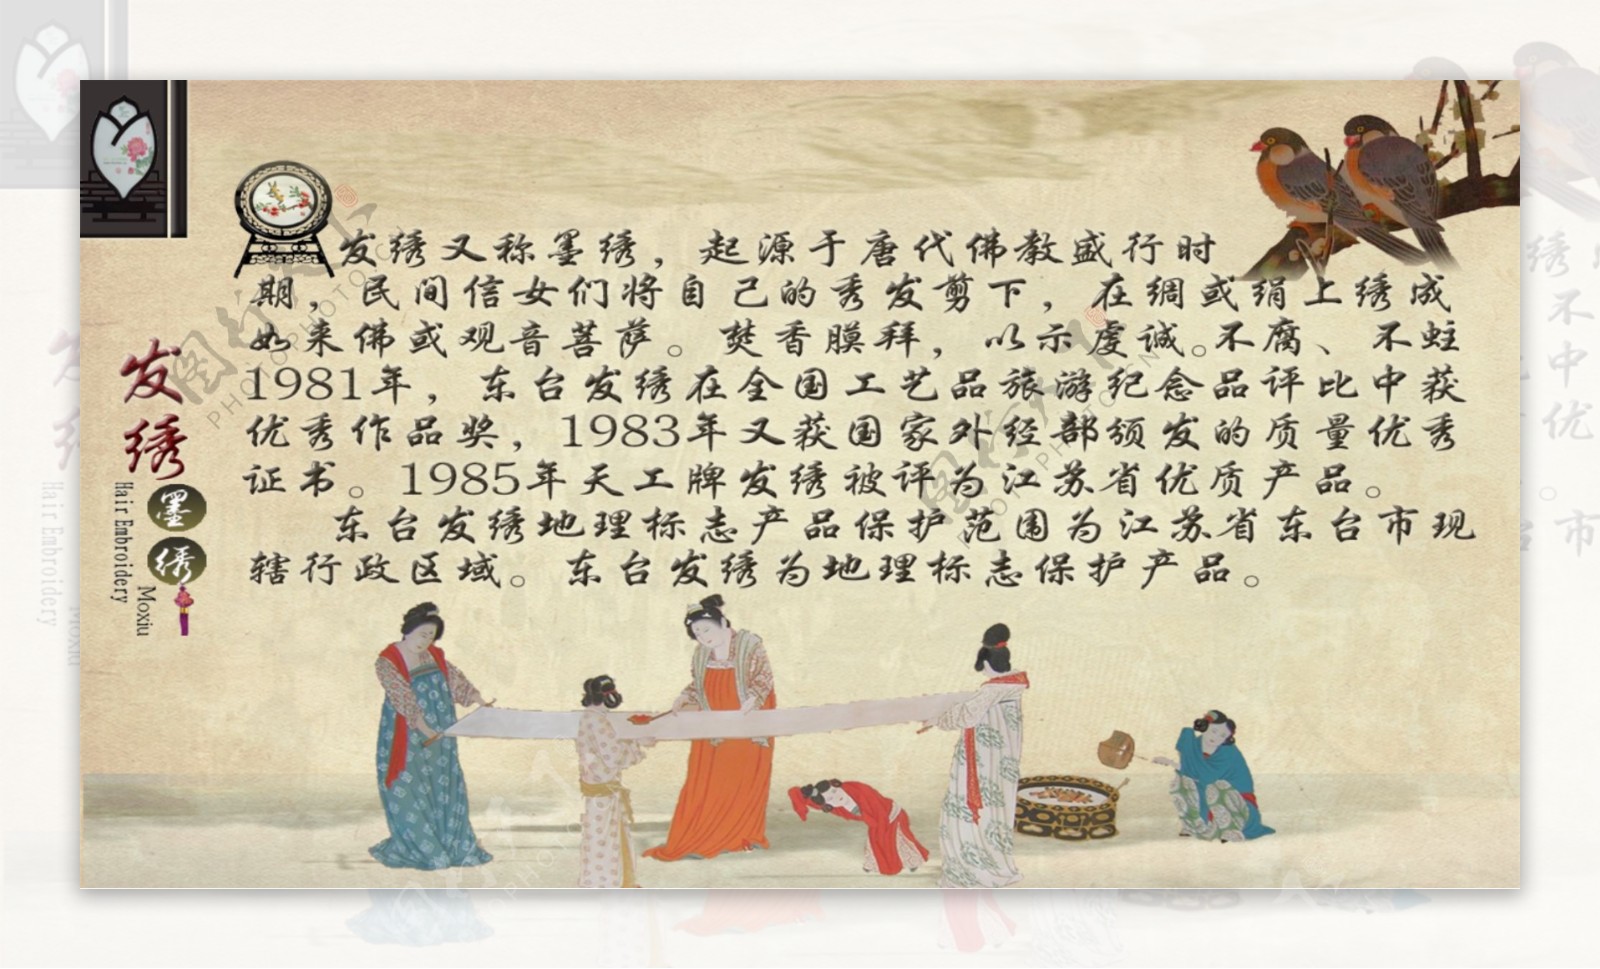 发绣又称墨绣，起源于唐代佛教盛行时
期，民间信女们将自己的秀发剪下，在绸或绢上绣成
如来佛或观音菩萨。焚香膜拜，以示虔诚。不腐、不蛀
1981年，东台发绣在全国工艺品旅游纪念品评比中获
优秀作品奖，1983年又获国家外经部颁发的质量优秀
证书。1985年天工牌发绣被评为江苏省优质产品。
东台发绣地理标志产品保护范围为江苏省东台市现
辖行政区域。东台发绣为地理标志保护产品。
发绣
墨绣
Hair Embroidery
Moxiu